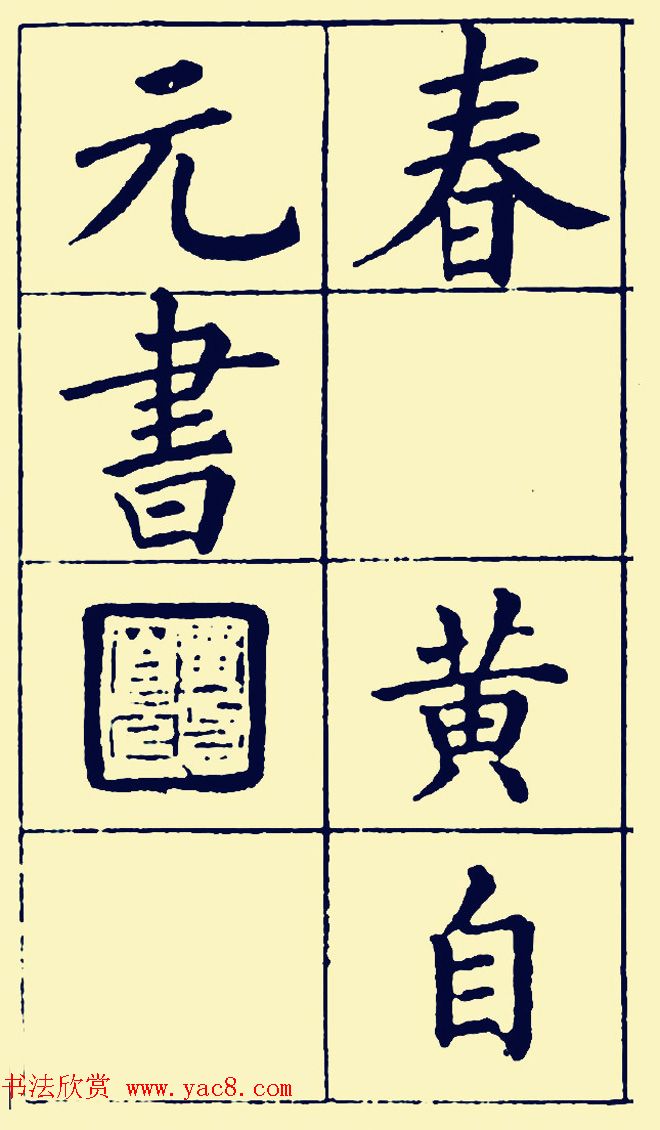 春 黄自
元書
书法欣赏 www.yac8.com